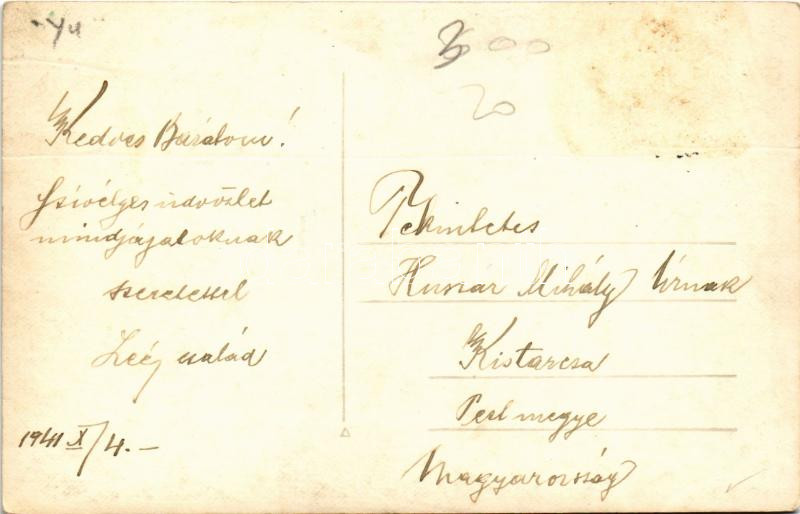 44
300
20
Kedves Barátom!
Szivélyes üdvözlet
mindjájatoknak
szeretettel
család
1941 X/4.-
Tekintetes
Huszár Mihály Úrnak
Kistarcsa
Pest megye
Magyarország